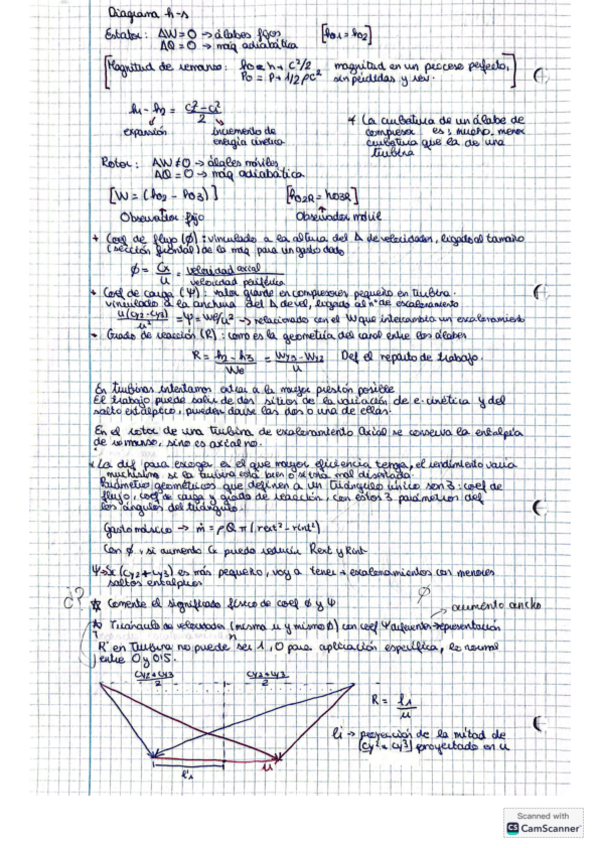 Diagrama h-s
Estator: ΔW=0 → álabes fijos [h01=h02]
ΔQ=0 → máq adiabática
[Magnitud de remanso: h0=h+C²/2 magnitud en un proceso perfecto,
P0=P+1/2ρc² sin pérdidas y rev.]
h1-h2 = c2²-c1²/2
expansión incremento de energía cinética
* La curvatura de un álabe de
compresor es mucho menor
curvatura que la de una
turbina
Rotor: ΔW≠0 → álabes móviles
ΔQ=0 → máq adiabática
[W=(h02-h03)] [h02R=h03R]
Observador fijo Observador móvil
* Coef de flujo (Φ): vinculado a la altura del Δ de velocidades, ligado al tamaño
(sección frontal) de la máq para un gasto dado
Φ = Cx/u = velocidad axial/velocidad periférica
* Coef de carga (Ψ): valor grande en compresores pequeño en turbina.
vinculado a la anchura del Δ de vel, ligado al nº de escalonamiento
u(cy2-cy3)/u² = Ψ = We/u² → relacionado con el W que intercambia un escalonamiento
- Grado de reacción (R): como es la geometría del canal entre los álabes
R = h2-h3/We = Wy3-Wy2/u Def el reparto de trabajo.
En turbinas intentamos entrar a la mayor presión posible
El trabajo puede salir de dos sitios de la variación de e. cinética y del
salto entálpico, pueden darse las dos o una de ellas.
En el rotor de una turbina de escalonamiento Axial se conserva la entalpía
de remanso, si no es axial no.
* La dif para escoger es el que mayor eficiencia tenga, el rendimiento varía
muchísimo si la turbina está bien o mal diseñada.
Parámetros geométricos que definen a un triángulo único son 3: coef de
flujo, coef de carga y grado de reacción, con estos 3 parámetros def
los ángulos del triángulo.
Gasto másico → ṁ = ρQ π(rext²-rint²)
Con Φ, si aumento Cx puedo reducir Rext y Rint
Ψ → Si (cy2+cy3) es más pequeño, voy a tener + escalonamientos con menores
saltos entálpicos
¿? * Comente el significado físico de coef Φ y Ψ
Φ → aumento ancho
* Triángulo de velocidades (misma u y mismo Φ) con coef Ψ diferentes representación
R en turbina no puede ser 1, 0 para aplicación específica, lo normal
entre 0 y 0'5.
cy2+cy3/2 cy2+cy3/2
R = l1/u
li → proyección de la mitad de
[cy2+cy3] proyectado en u
l1 u
Scanned with
CS CamScanner